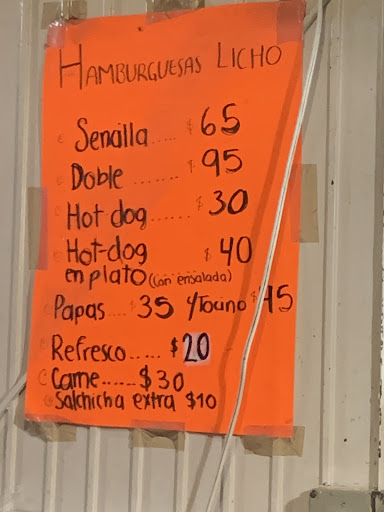 HAMBURGUESAS LICHO
Sencilla..... $65
Doble ....... $95
Hot dog...... $30
Hot-dog $40
en plato (Con ensalada)
Papas ... $35 y/Tocino $45
Refresco..... $20
Carne...... $30
Salchicha extra $10